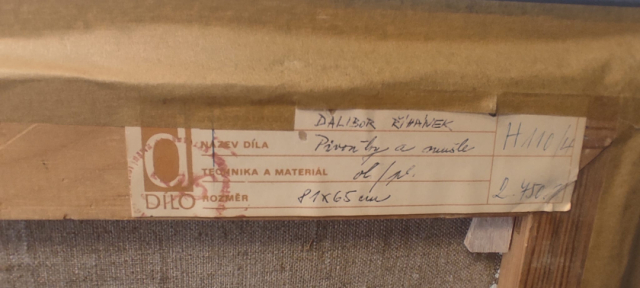 DALIBOR ŘÍHÁNEK
NÁZEV DÍLA Pivoňky a mušle
TECHNIKA A MATERIÁL ol/pl.
DÍLO ROZMĚR 81x65 cm
H 110/
2.450